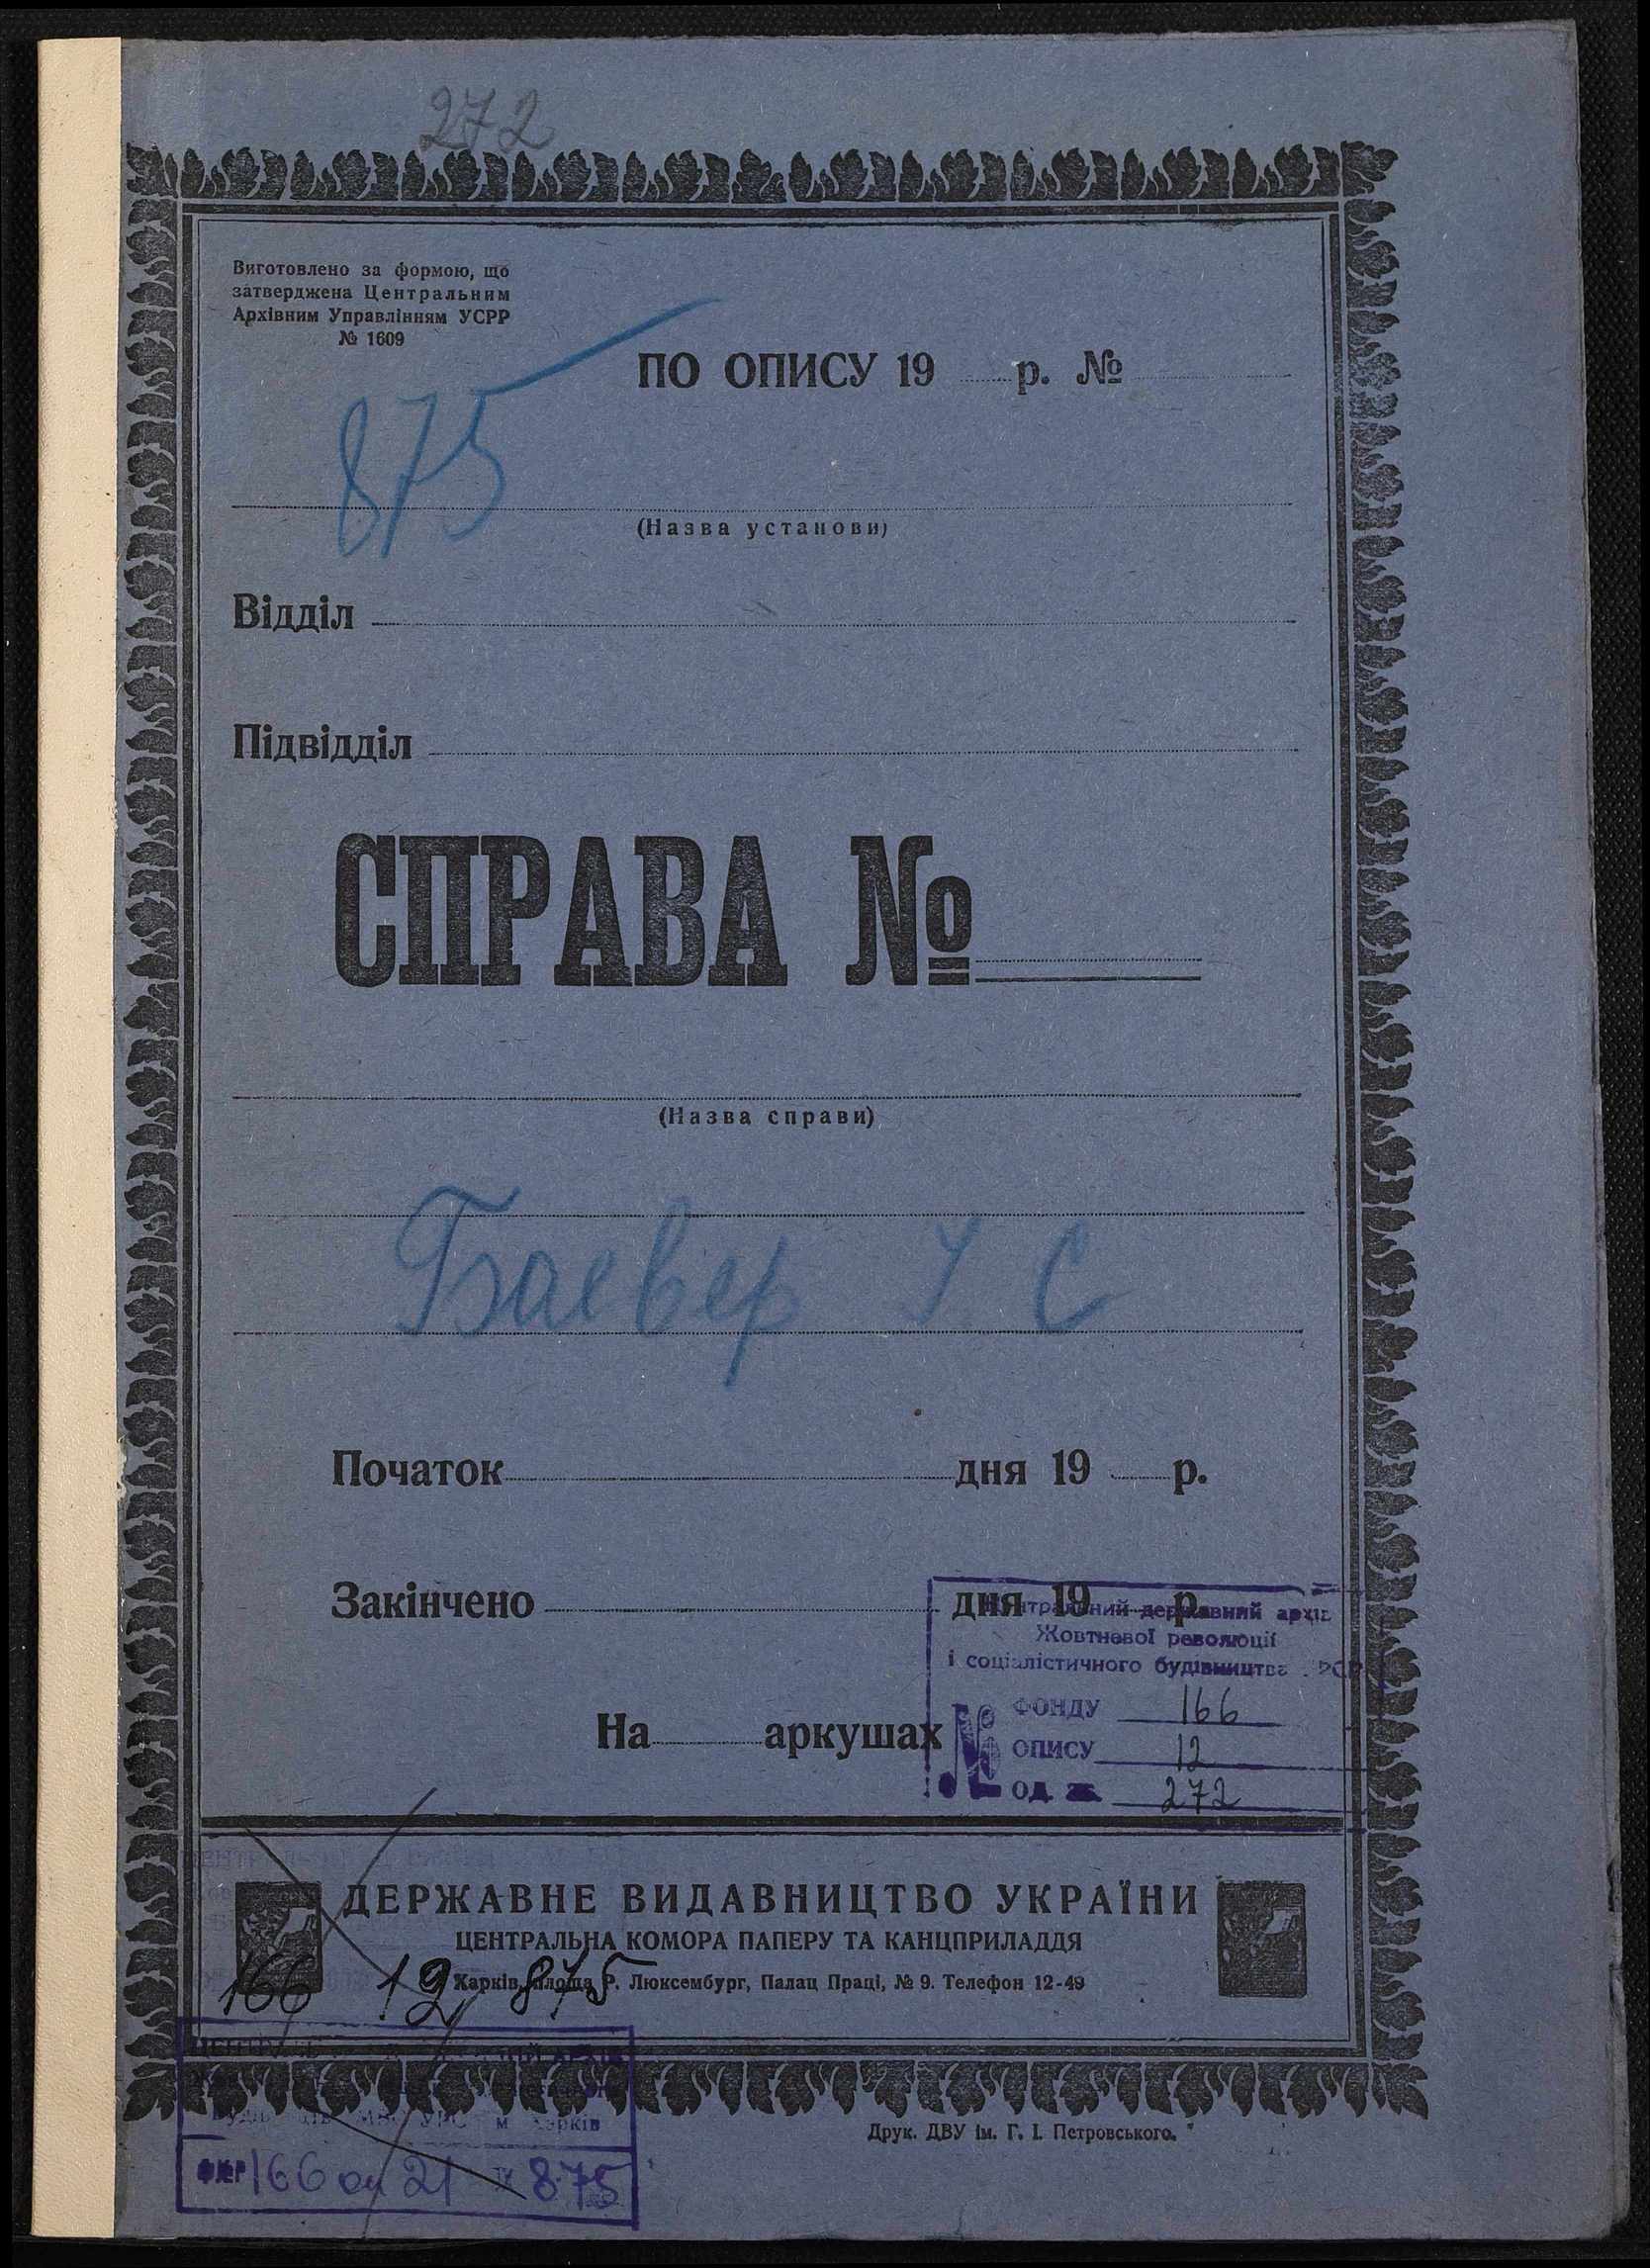 272
Виготовлено за формою, що
затверджена Центральним
Архівним Управлінням УСРР
№ 1609
ПО ОПИСУ 19 р. №
875
(Назва установи)
Відділ
Підвідділ
СПРАВА №
(Назва справи)
Баевер І. С
Початок дня 19 р.
Закінчено дня 19 р.
Центральний державний архів
Жовтневої революції
і соціалістичного будівництва
На аркушах
№ ФОНДУ 166
ОПИСУ 12
ОД. 272
ДЕРЖАВНЕ ВИДАВНИЦТВО УКРАЇНИ
ЦЕНТРАЛЬНА КОМОРА ПАПЕРУ ТА КАНЦПРИЛАДДЯ
Харків, площа Р. Люксембург, Палац Праці, № 9. Телефон 12-49
166 12 875
м Харків
Друк. ДВУ ім. Г. І. Петровського.
166 оп 21 875